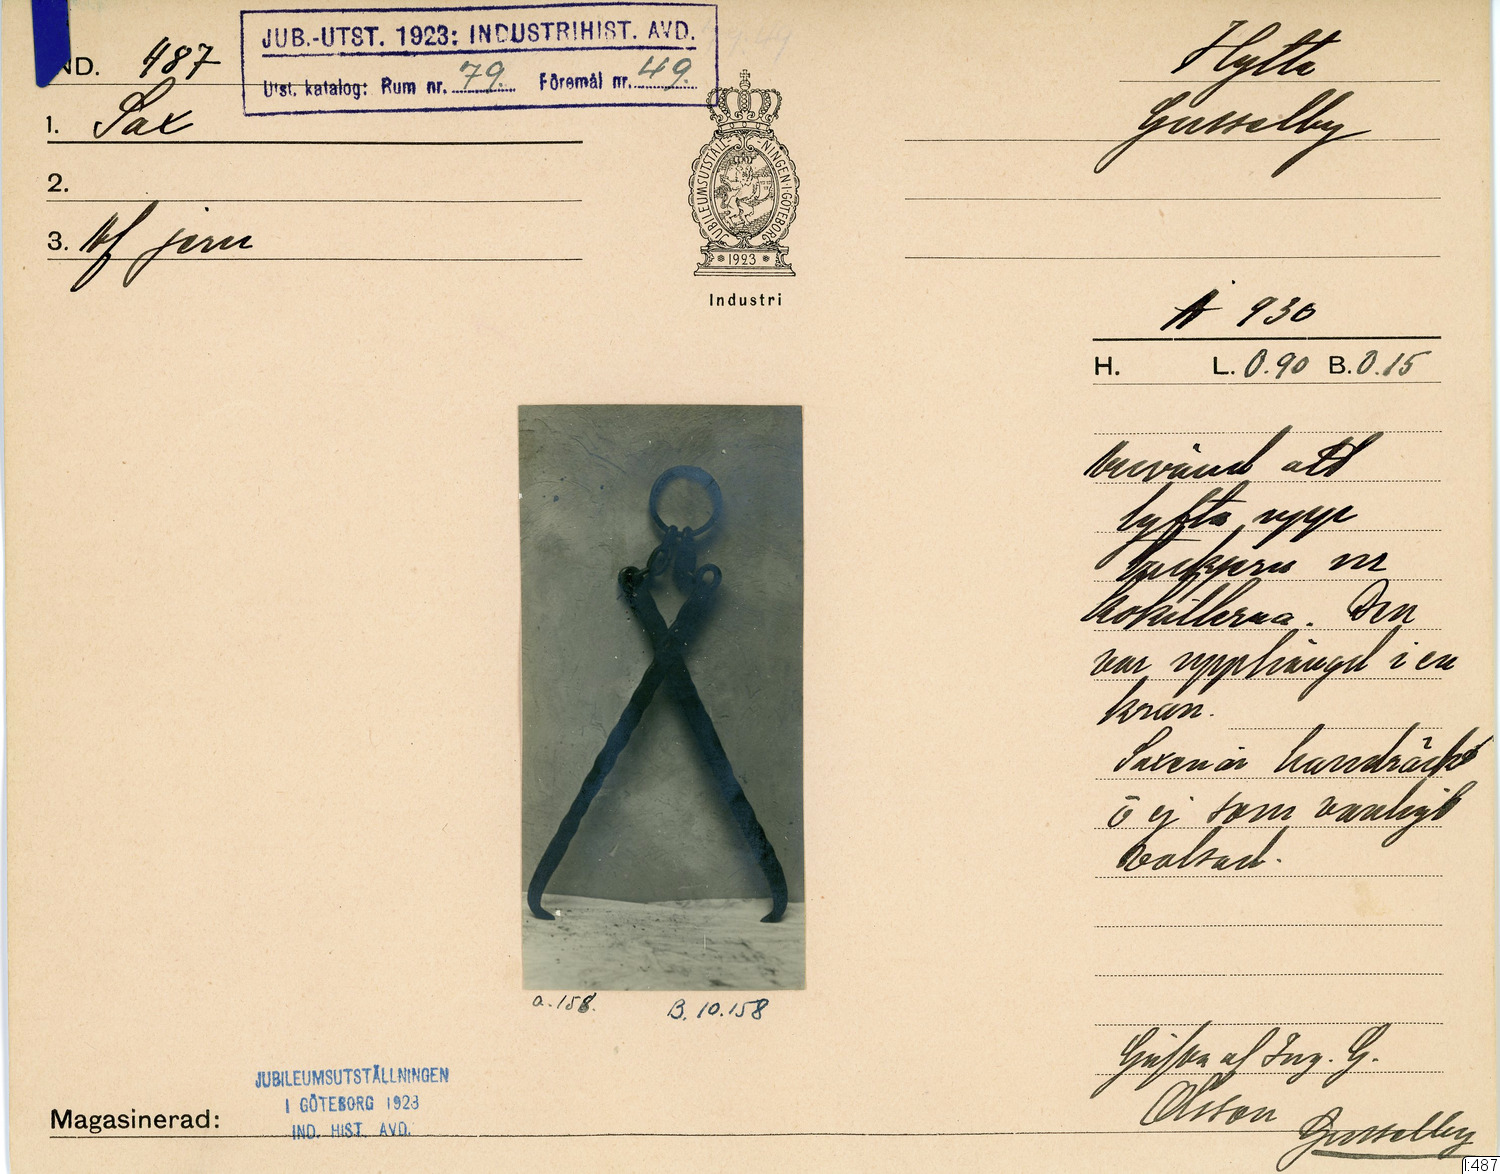 IND. 487
JUB.-UTST. 1923: INDUSTRIHIST. AVD.
Utst. katalog: Rum nr. 79. Föremål nr. 49.
1. Sax
2.
3. Af jern
JUBILEUMSUTSTÄLL-NINGEN·I·GÖTEBORG
1923
Industri
Hytta
Gusselby
N 930
H. L. 0.90 B. 0.15
Använd att
lyfta upp
tackjern ur
kokillerna. Den
var upphängd i en
kran.
Saxen är handräckt
o ej som vanligt
valsad.
a.158. B.10.158
Gåfva af Ing. G.
Olsson Gusselby
Magasinerad:
JUBILEUMSUTSTÄLLNINGEN
I GÖTEBORG 1923
IND. HIST. AVD.
I:487